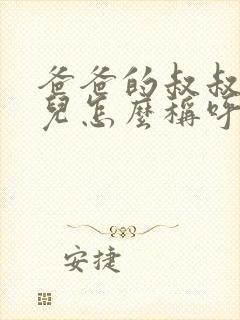 爸爸的叔叔
兒怎麼稱呼
安捷